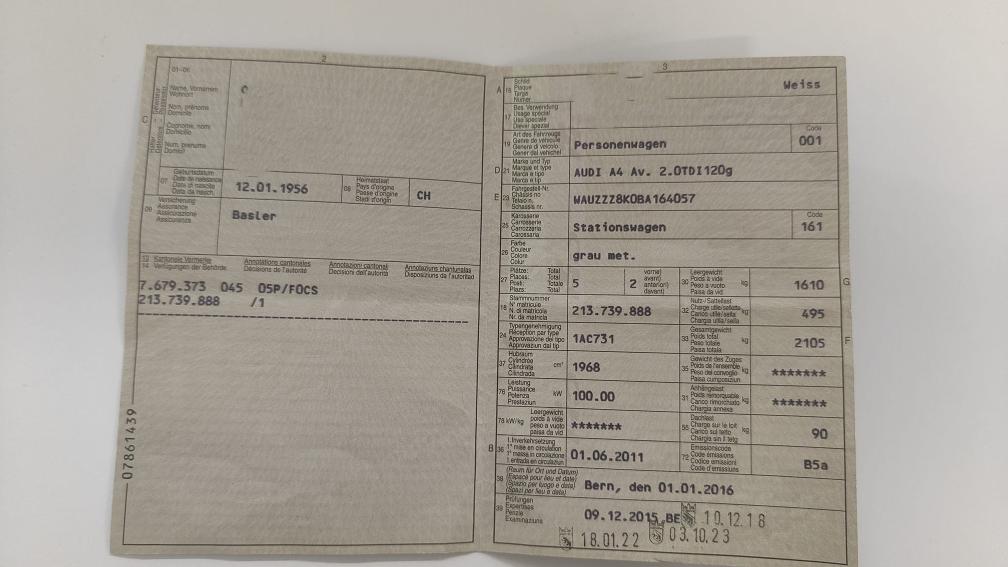 2
01-06
Name, Vornamen
Wohnort
Nom, prénoms
Domicile
Cognome, nomi
Domicilio
Num, prenums
Domicil
C
07
Geburtsdatum
Date de naissance
Data di nascita
Data da nasch.
12.01.1956
08
Heimatstaat
Pays d'origine
Paese d'origine
Stadi d'origin
CH
09
Versicherung
Assurance
Assicurazione
Assicuranza
Basler
13
14
Kantonale Vermerke
Verfügungen der Behörde
Annotations cantonales
Décisions de l'autorité
Annotazioni cantonali
Decisioni dell'autorità
Annotaziuns chantunalas
Disposiziuns da l'autoritad
7.679.373 045 05P/FOCS
213.739.888 /1
07861439
3
A
Schild
Plaque
Targa
Numer
Weiss
17
Bes. Verwendung
Usage spécial
Uso speciale
Diever spezial
19
Art des Fahrzeugs
Genre de véhicule
Genere di veicolo
Gener dal vehichel
Personenwagen
Code
001
D 21
Marke und Typ
Marque et type
Marca e tipo
Marca e tip
AUDI A4 Av. 2.0TDI120g
E 23
Fahrgestell-Nr.
Châssis no
Telaio n.
Schassis nr.
WAUZZZ8K0BA164057
25
Karosserie
Carrosserie
Carrozzeria
Carossaria
Stationswagen
Code
161
26
Farbe
Couleur
Colore
Colur
grau met.
27
Plätze: Total
Places: Total
Posti: Totale
Plazs: Total
5
2
vorne)
avant)
anteriori)
davant)
30
Leergewicht
Poids à vide
Peso a vuoto
Paisa da vid
kg
1610
G
18
Stammnummer
N° matricule
N. di matricola
Nr. da matricla
213.739.888
32
Nutz-/Sattellast
Charge utile/sellette
Carico utile/sella
Chargia utila/sella
kg
495
24
Typengenehmigung
Réception par type
Approvazione del tipo
Approvaziun dal tip
1AC731
33
Gesamtgewicht
Poids total
Peso totale
Paisa totala
kg
2105
F
37
Hubraum
Cylindrée
Cilindrata
Cilindrada
cm³
1968
35
Gewicht des Zuges
Poids de l'ensemble
Peso del convoglio
Paisa cumposiziun
kg
*******
76
Leistung
Puissance
Potenza
Prestaziun
kW
100.00
31
Anhängelast
Poids remorquable
Carico rimorchiato
Chargia annexa
kg
*******
78 kW/kg
Leergewicht
poids à vide
peso a vuoto
paisa da vid
*******
55
Dachlast
Charge sur le toit
Carico sul tetto
Chargia sin il tetg
kg
90
B 36
1. Inverkehrsetzung
1re mise en circulation
1a messa in circolazione
1. entrada en circulaziun
01.06.2011
72
Emissionscode
Code émissions
Codice emissioni
Code d'emissiuns
B5a
38
(Raum für Ort und Datum)
(Espace pour lieu et date)
(Spazio per luogo e data)
(Spazi per lieu e data)
Bern, den 01.01.2016
39
Prüfungen
Expertises
Perizie
Examinaziuns
09.12.2015,BE 10.12.18
18.01.22 03.10.23